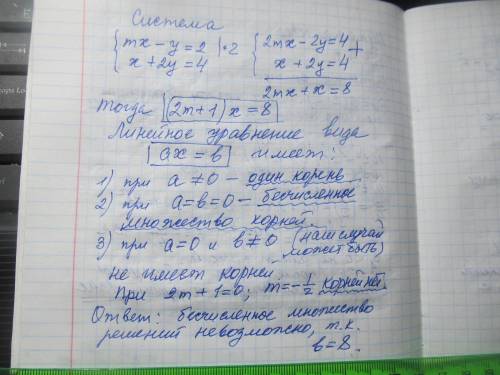 Система
{mx - y = 2 |·2 {2mx - 2y = 4 +
x + 2y = 4 x + 2y = 4
2mx + x = 8
Тогда (2m+1)x = 8
Линейное уравнение вида
ax = b имеет:
1) при a ≠ 0 - один корень
2) при a = b = 0 - бесчисленное
множество корней.
3) при a = 0 и b ≠ 0 (наш случай
может быть)
не имеет корней
При 2m + 1 = 0; m = -1/2 корней нет.
Ответ: бесчисленное множество
решений невозможно, т.к.
b = 8.